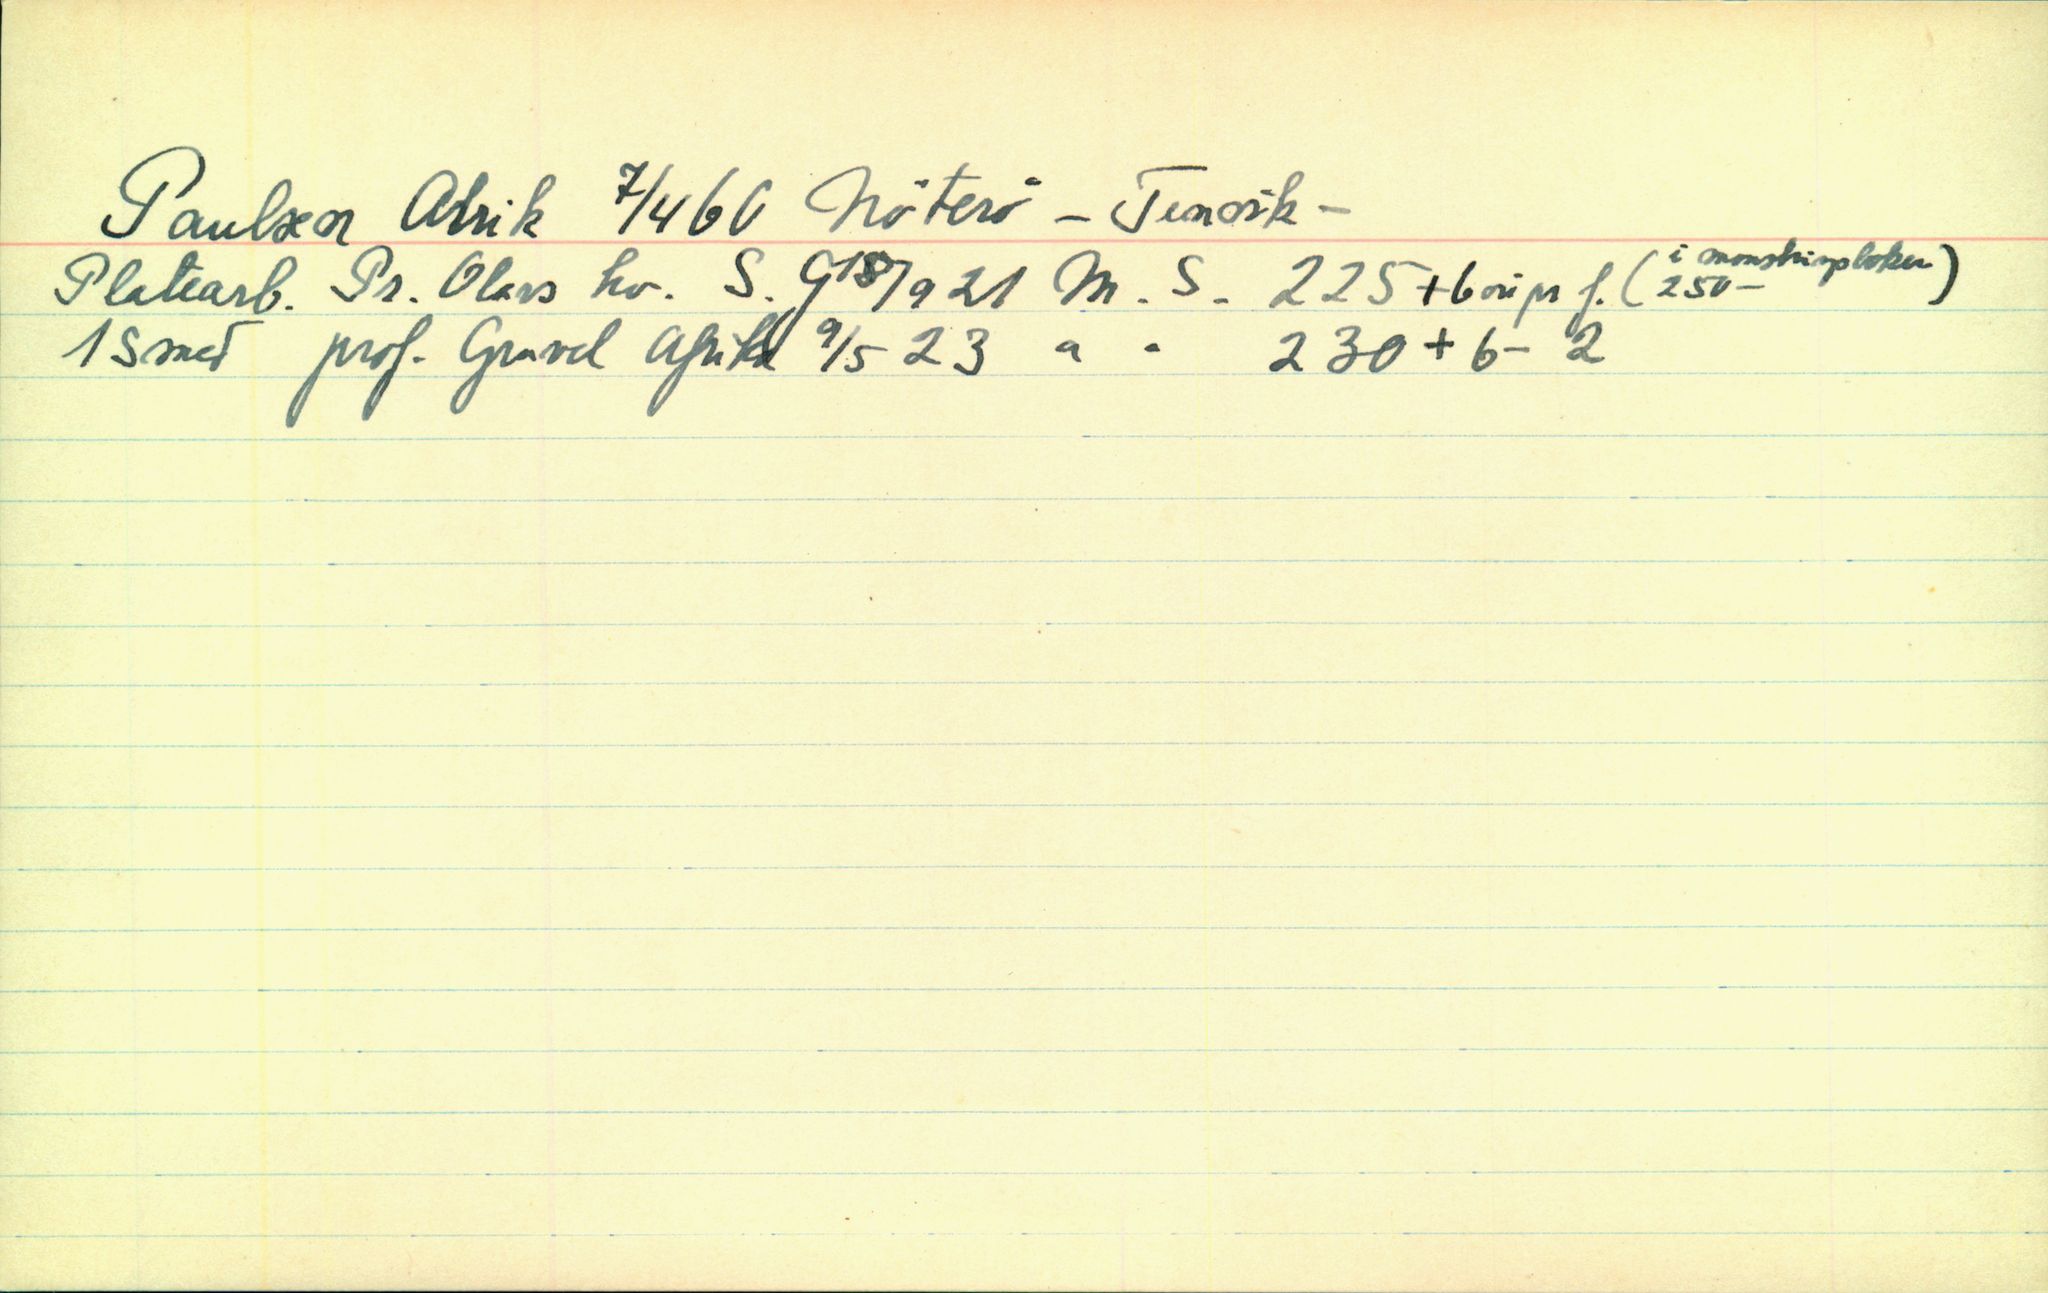 Paulsen Alrik 7/4 60 Nöterö - Tenvik -
Platearb. Pr. Olavs kv. S. G 18/9 21 M. S. 225 + 6 öre pr f. (i mönstringsboken 250 -)
1 Smed prof. Gruvel Afrika 9/5 23 " " 230 + 6 - 2